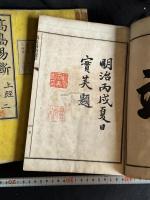 高島易斷
上經 二
明治丙戌夏日
實美題